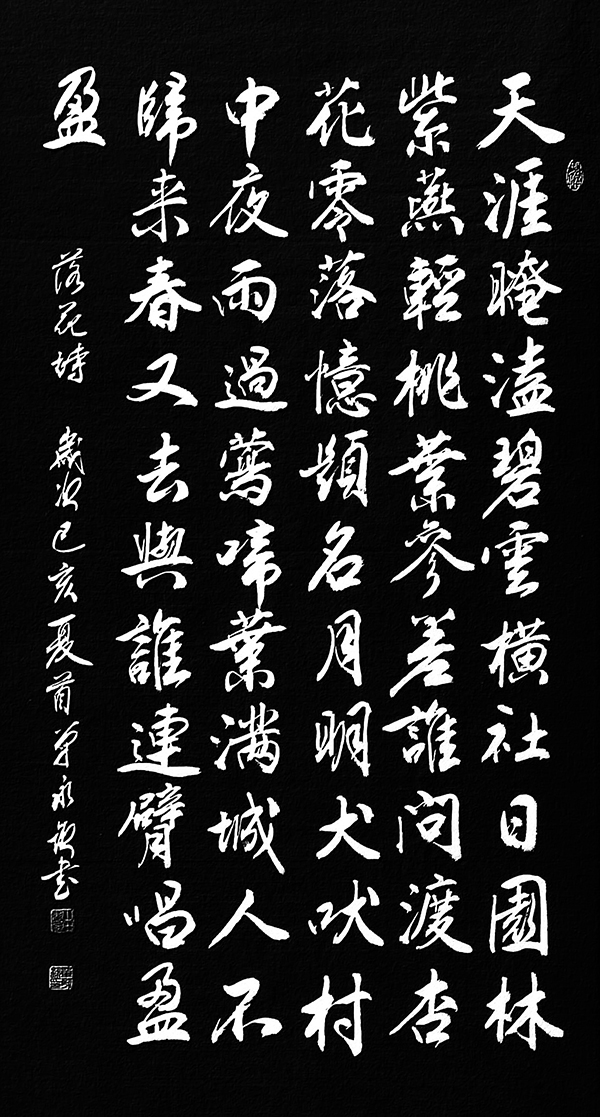 天涯晻溘碧雲橫社日園林
紫燕輕桃葉參差誰問渡杏
花零落憶題名月明犬吠村
中夜雨過鶯啼葉滿城人不
歸来春又去與誰連臂唱盈
盈
落花詩 歲次己亥夏首 永 書